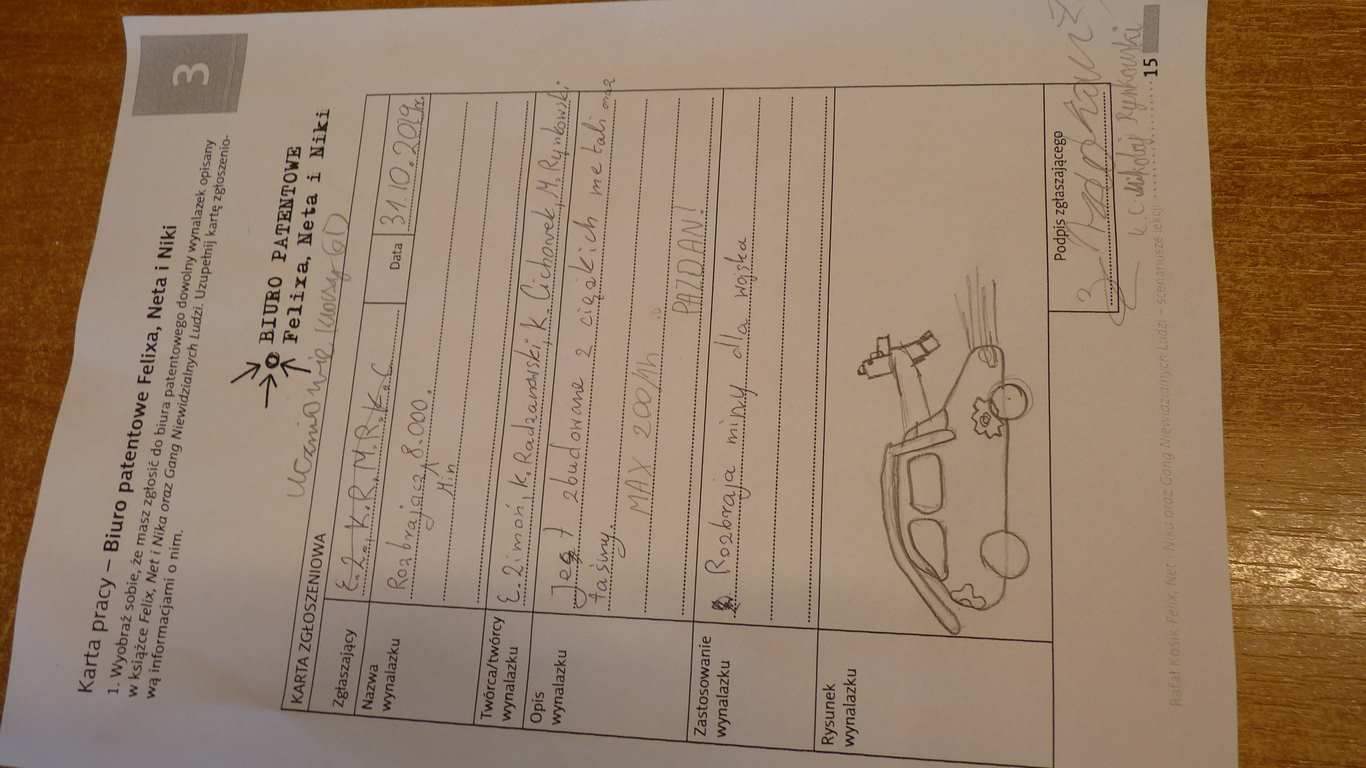 3
Karta pracy – Biuro patentowe Felixa, Neta i Niki
1. Wyobraź sobie, że masz zgłosić do biura patentowego dowolny wynalazek opisany
w książce Felix, Net i Nika oraz Gang Niewidzialnych Ludzi. Uzupełnij kartę zgłoszenio-
wą informacjami o nim.
BIURO PATENTOWE
Felixa, Neta i Niki
Uczniowie klasy 6D
KARTA ZGŁOSZENIOWA
Zgłaszający E.Z. K.R. M.R. K.C Data 31.10.2019r.
Nazwa
wynalazku
Rozbrajacz 8.000.
Min
Twórca/twórcy
wynalazku
E. Zimoń, K. Radzanowski, K. Cichonek, M. Rynkowski
Opis
wynalazku
Jest zbudowane z ciężkich metali oraz
taśmy.
MAX 200/h
PAZDAN!
Zastosowanie
wynalazku
Rozbraja miny dla wojska
Rysunek
wynalazku
Podpis zgłaszającego
K.C. Mikołaj Rynkowski
Rafał Kosik Felix, Net i Nika oraz Gang Niewidzialnych Ludzi – scenariusze lekcji
15